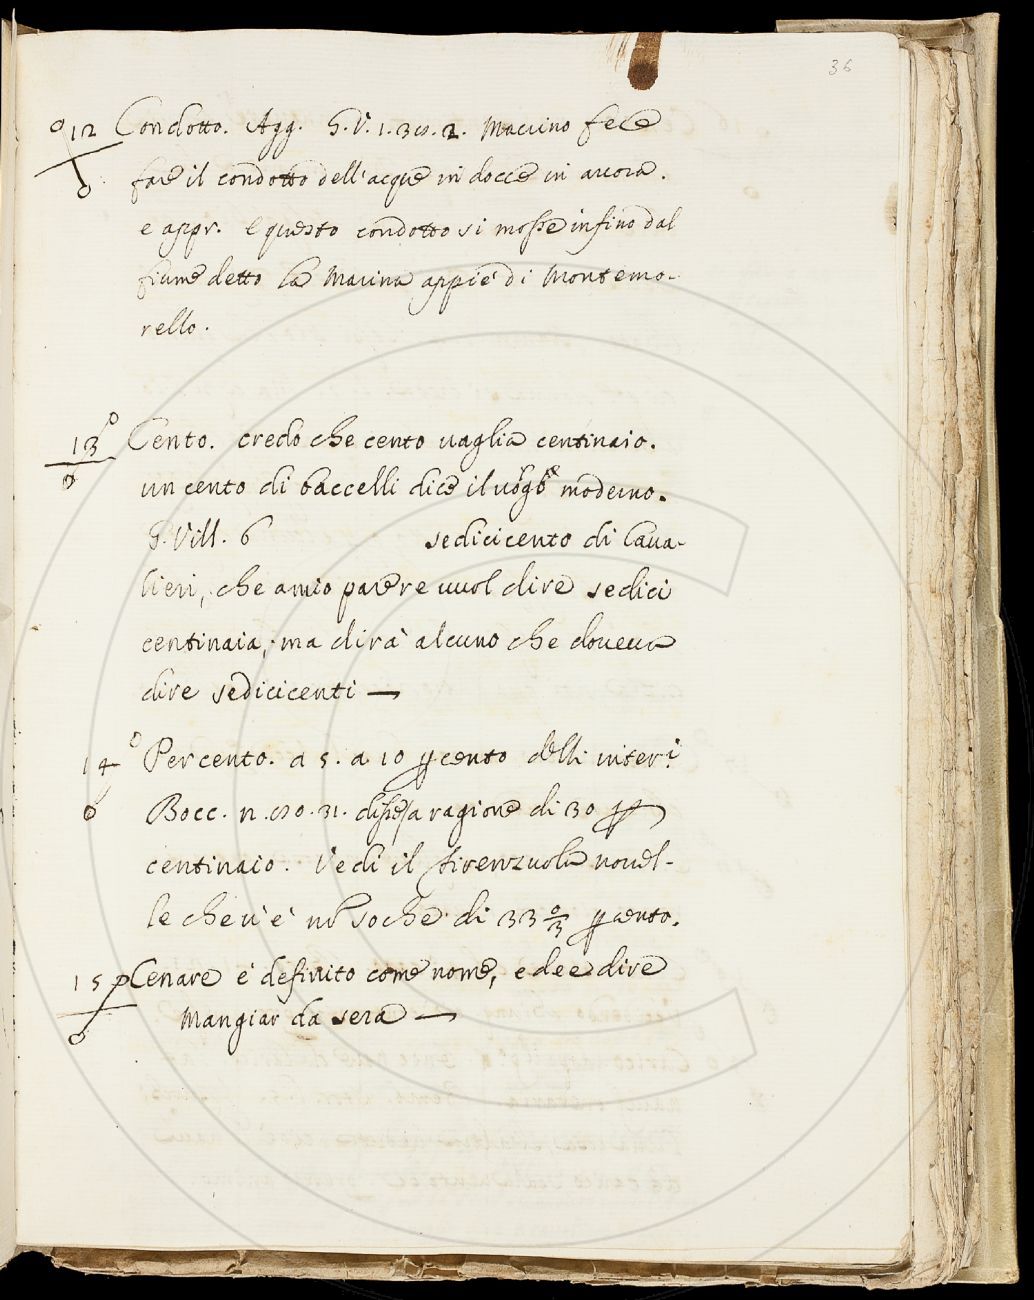 36
12 Condotto. Agg. G. V. 1. 3co. 2. Macrino fece
fare il condotto dell'acque in docce in arcora.
e appr. E questo condotto si mosse infino dal
fiume detto la Marina appiè di Montemo-
rello.
13 Cento. credo che cento vaglia centinaio.
un cento di baccelli dice il moderno.
G. Vill. 6 sedicicento di Cava-
lieri, che a mio parere vuol dire sedici
centinaia, ma dirà alcuno che doveva
dire sedicicenti —
14 Per cento. a 5. a 10 p cento delli interi
Bocc. n. 80. 31. a ragione di 30 p
centinaio. Vedi il firenzuola novel-
le che v'è nō so che di 33 p cento.
15 Cenare è definito come nome, e dee dire
Mangiar da sera —